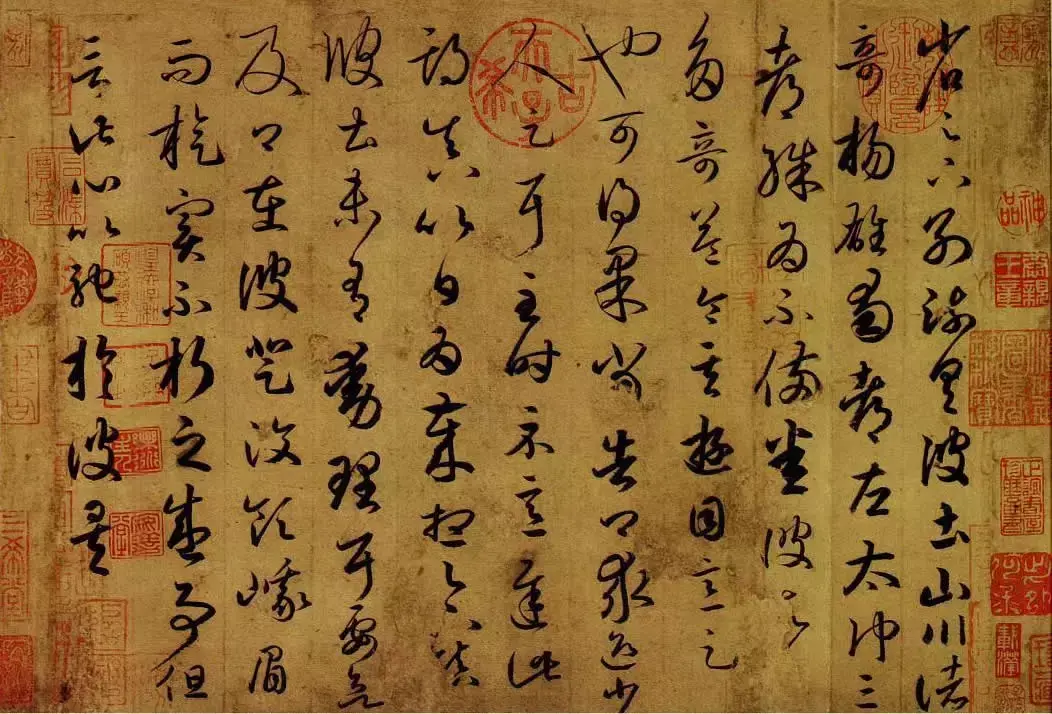 省足下別疏具彼土山川諸
奇楊雄蜀都左太沖三
都殊為不備悉彼故
多奇益令其遊目意足
也可得果當告卿求迎少
人足耳至時示意遲此
期真以日為歲想足下鎮
彼土未有動理耳要欲
及卿在彼登汶領峨眉
而旋實不朽之盛事但
言此心以馳於彼矣
神品